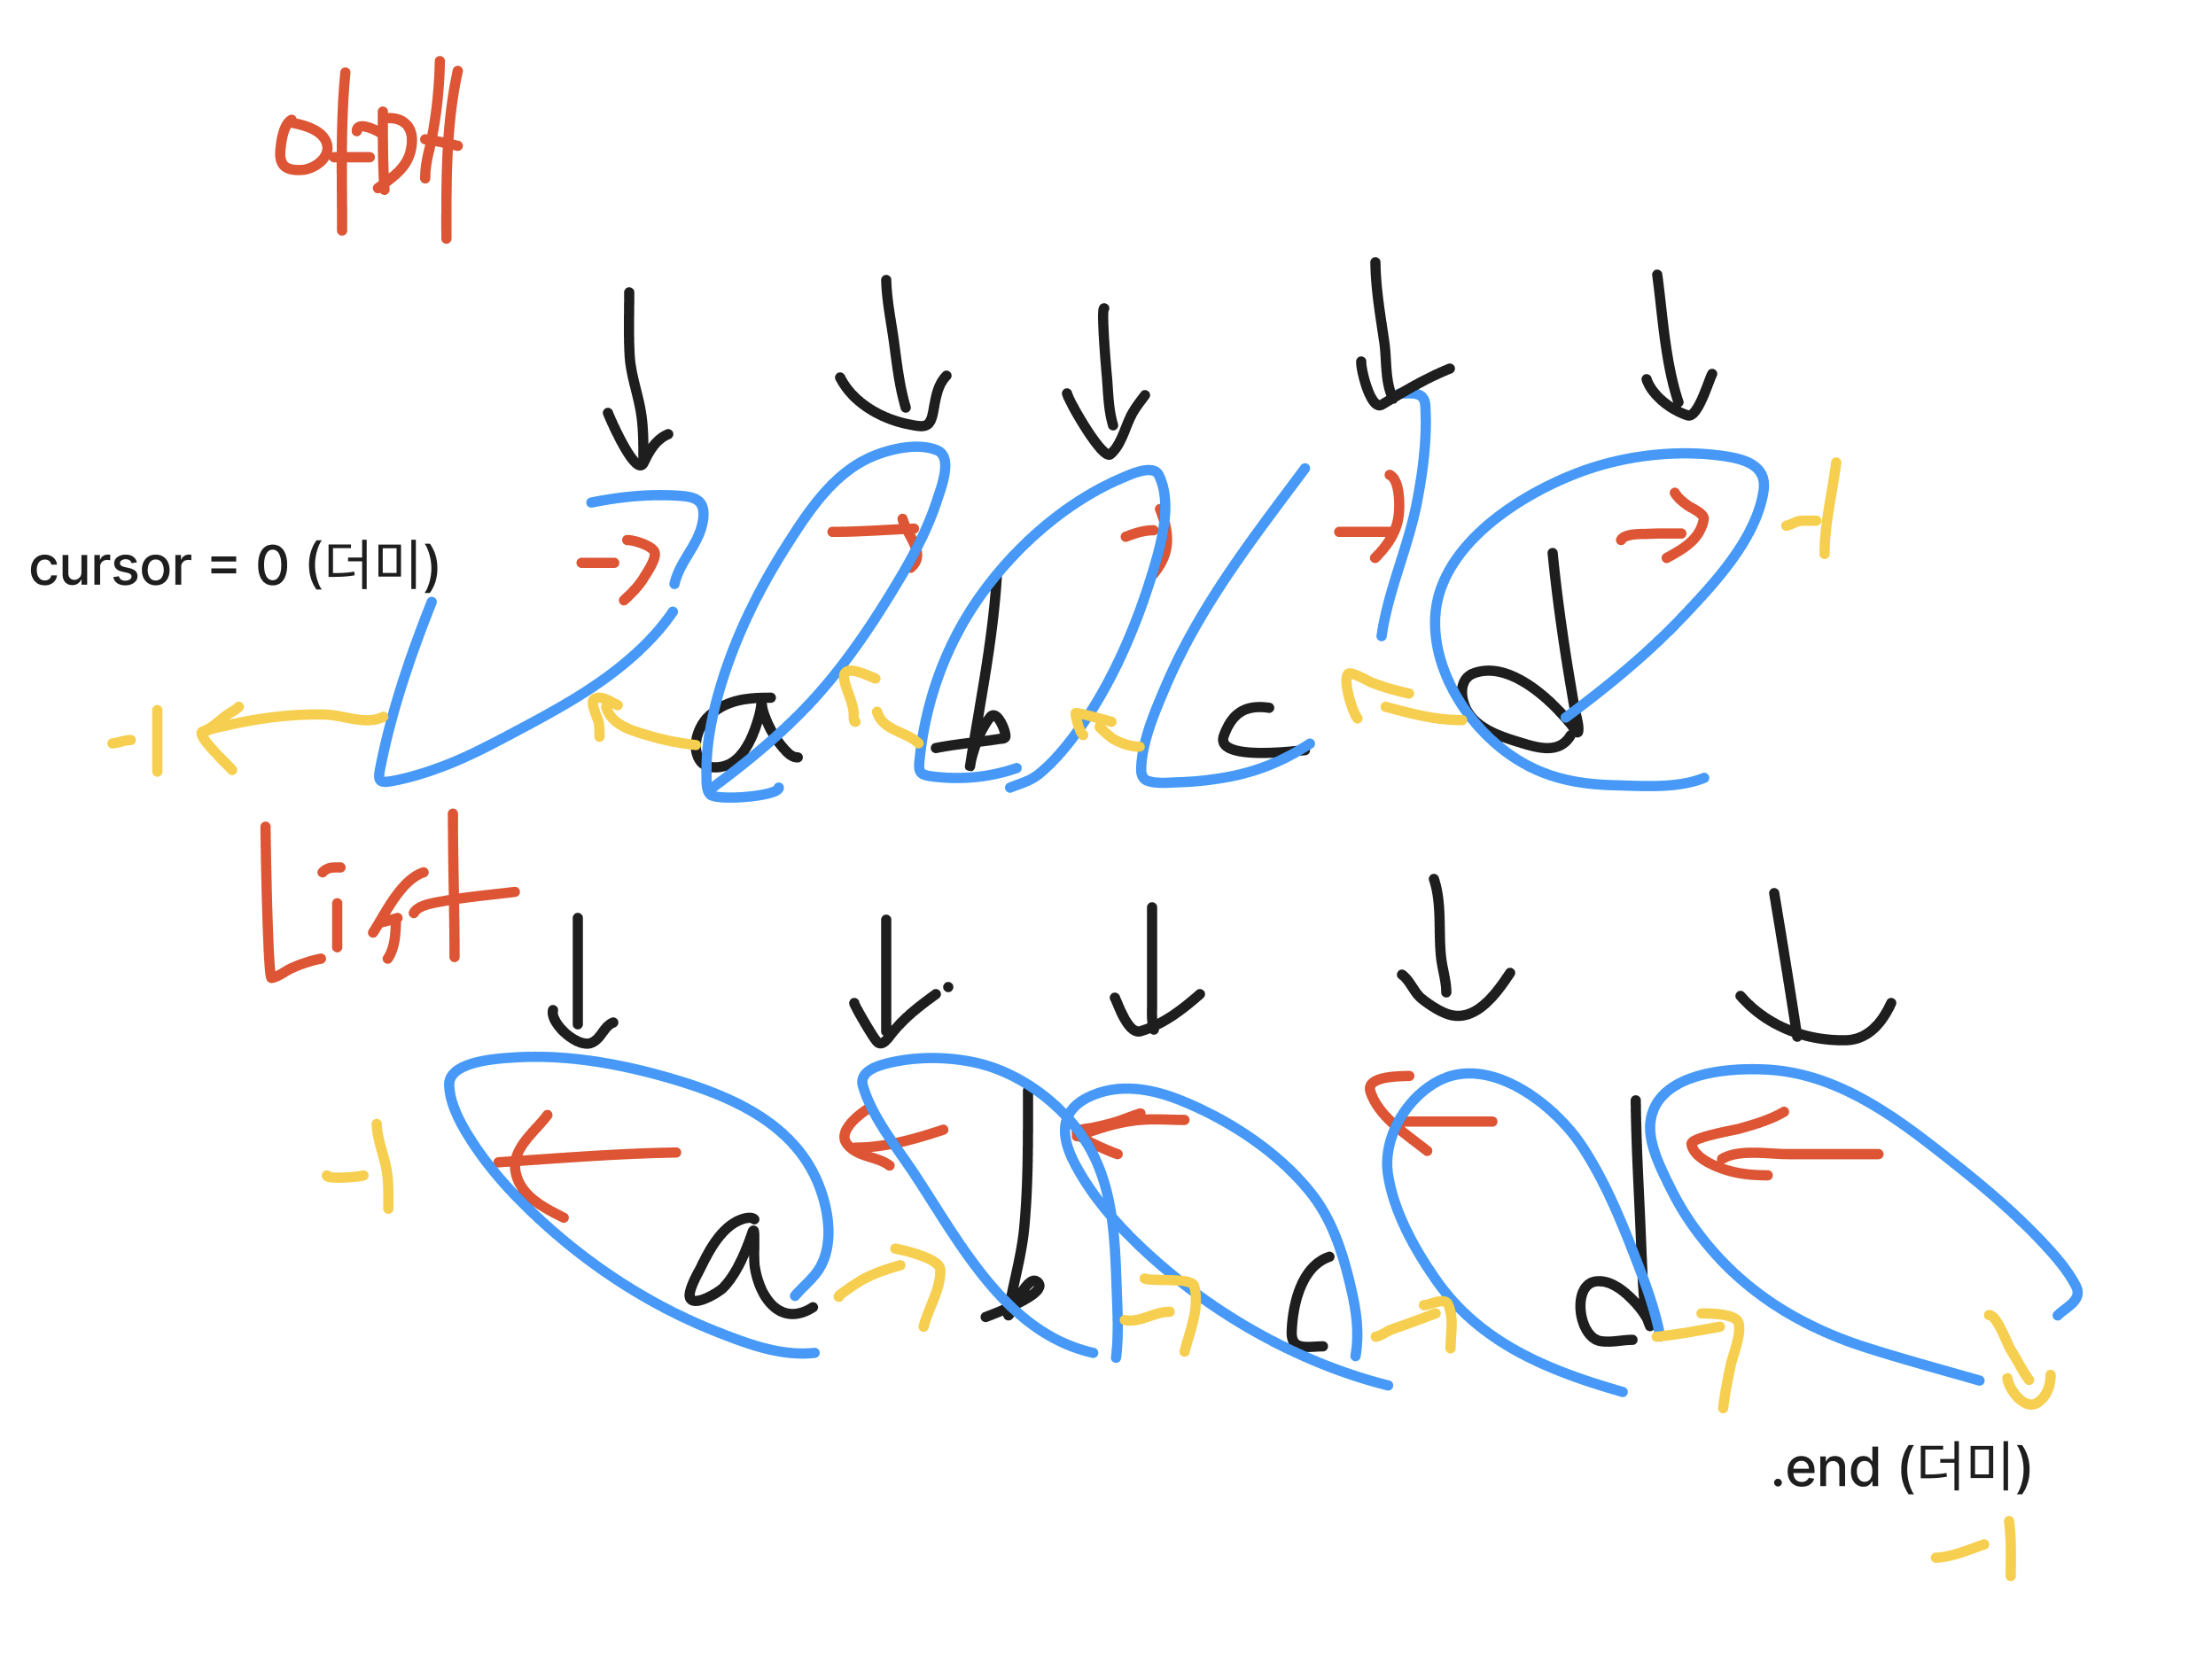 야매
cursor = 0 (더미)
a b c d
-1
-1
List
-1
a b c d
.end (더미)
-1